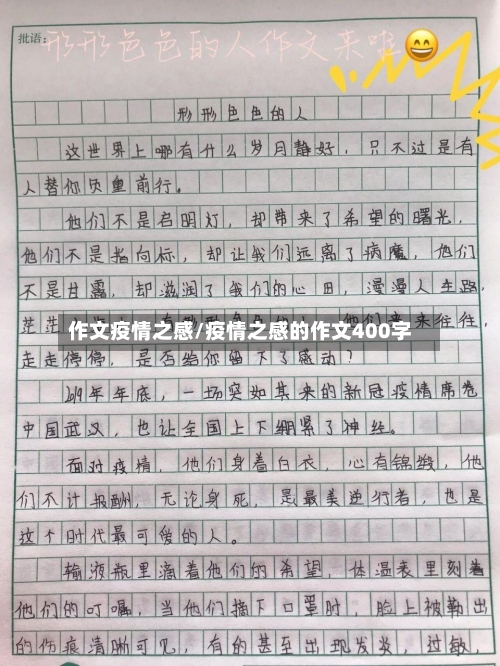 批语：形形色色的人作文来啦
形形色色的人
这世界上哪有什么岁月静好，只不过是有
人替你负重前行。
他们不是启明灯，却带来了希望的曙光，
他们不是指向标，却让我们远离了病魔，他们
不是甘露，却滋润了我们的心田，漫漫人生路，
茫茫
来来往往，
作文疫情之感/疫情之感的作文400字
走走停停，是否给你留下了感动？
2019年年底，一场突如其来的新冠疫情席卷
中国武汉，也让全国上下绷紧了神经。
面对疫情，他们身着白衣，心有锦缎，他
们不计报酬，无论身死，是最美逆行者，也是
这个时代最可爱的人。
输液瓶里滴着他们的希望，体温表里刻着
他们的叮嘱，当他们摘下口罩时，脸上被勒出
的伤痕清晰可见，有的甚至出现发炎，过敏，